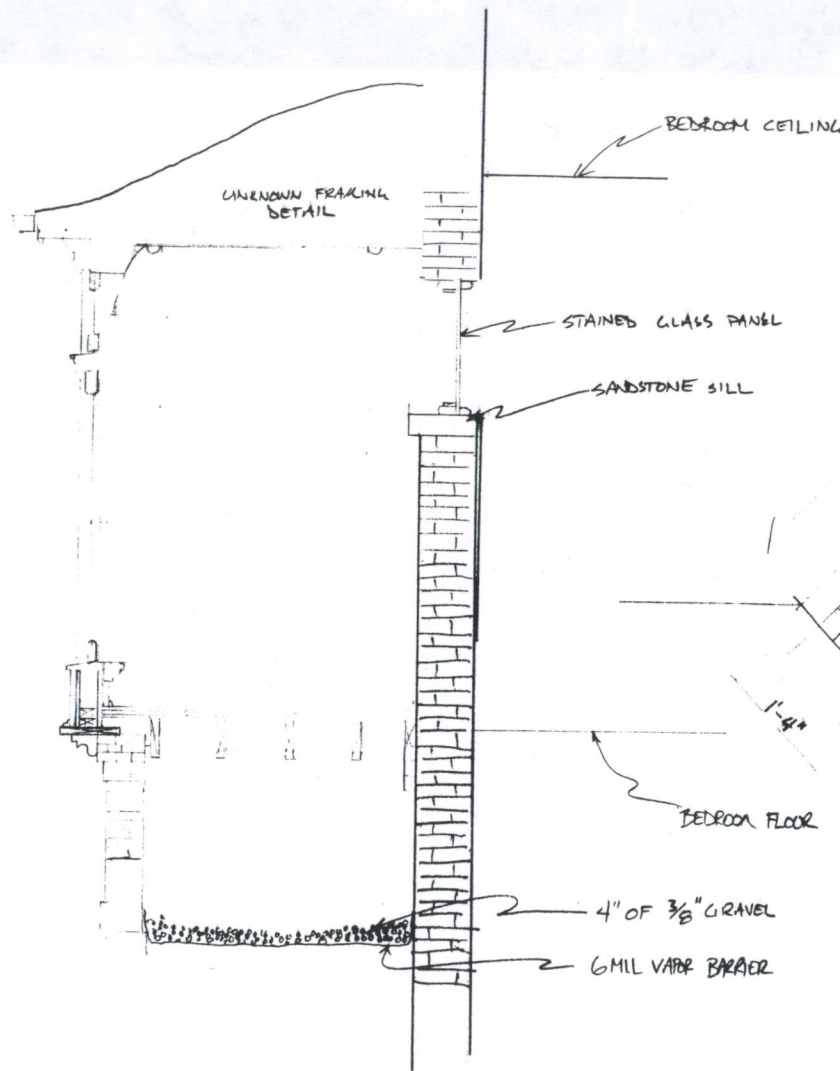 BEDROOM CEILING
UNKNOWN FRAMING
DETAIL
STAINED GLASS PANEL
SANDSTONE SILL
BEDROOM FLOOR
4" OF 3/8" GRAVEL
6 MIL VAPOR BARRIER